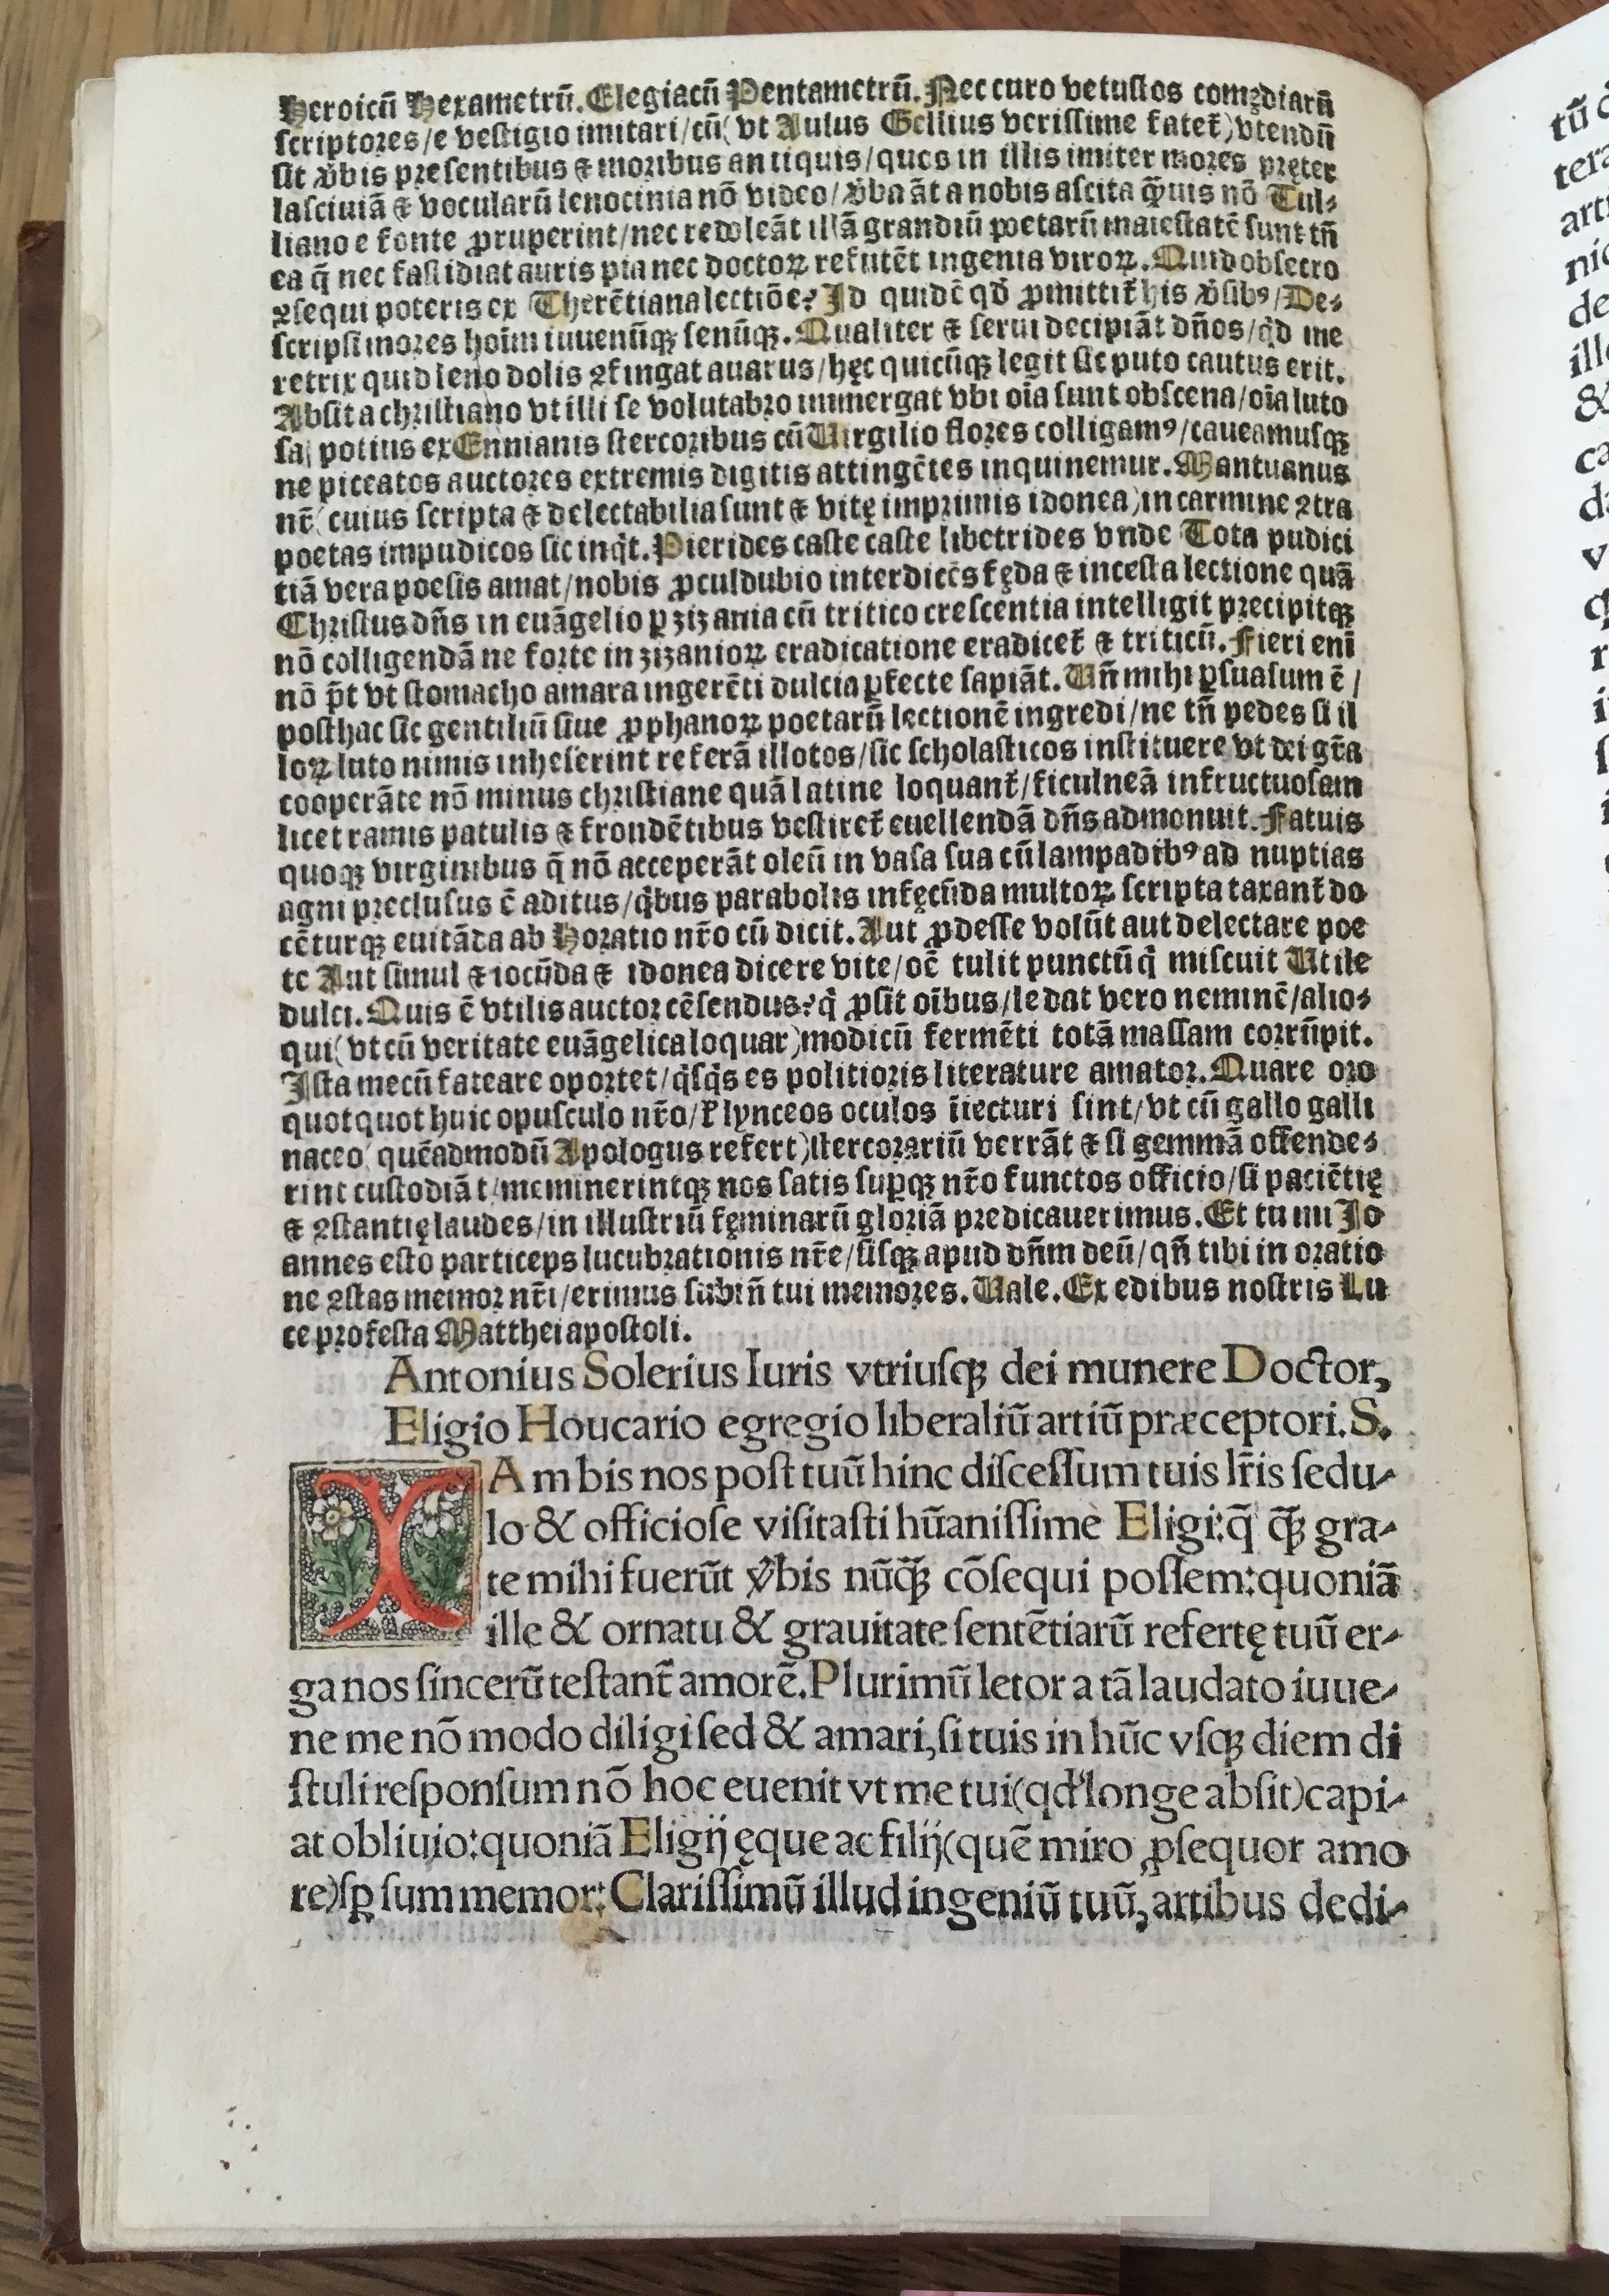 Heroicũ Hexametrũ. Elegiacũ Pentametrũ. Nec curo vetustos comędiarũ
scriptores/e vestigio imitari/cũ(vt Aulus Gellius verissime fatet᷑)vtendũ
sit v̾bis presentibus ⁊ moribus antiquis/quos in illis imiter mores pręter
lasciuiã ⁊ vocularũ lenocinia nõ video/v̾ba ãt a nobis ascita q̃uis nõ Tul-
liano e fonte ꝓruperint/nec redoleãt illã grandiũ poetarũ maiestatẽ sunt tñ
ea q̃ nec fastidiat auris pia nec doctoꝝ refutẽt ingenia viroꝝ. Quid obsecro
ꝯsequi poteris ex Therẽtiana lectiõe? Id quidẽ qď ꝓmittit᷑ his v̾sibꝰ/De-
scripsi mores hoĩm iuuenũqꝫ senũqꝫ. Qualiter ⁊ serui decipiãt dños/qd me
retrix quid leno dolis ꝯfingat auarus/hęc quicũqꝫ legit sic puto cautus erit.
Absit a christiano vt illi se volutabro immergat vbi oĩa sunt obscena/oĩa luto
sa/ potius ex Ennianis stercoribus cũ Virgilio flores colligamꝰ/caueamusqꝫ
ne piceatos auctores extremis digitis attingẽtes inquinemur. Mantuanus
nr̃(cuius scripta ⁊ delectabilia sunt ⁊ vitę imprimis idonea)in carmine ꝯtra
poetas impudicos sic inqt. Pierides caste caste libetrides vnde Tota pudici
tiã vera poesis amat/nobis ꝓculdubio interdicẽs fęda ⁊ incesta lectione quã
Christus dñs in euãgelio ꝑ zizania cũ tritico crescentia intelligit precipitqꝫ
nõ colligendã ne forte in zizanioꝝ eradicatione eradicet᷑ ⁊ triticũ. Fieri enĩ
nõ p̃t vt stomacho amara ingerẽti dulcia ꝑfecte sapiãt. Vñ mihi ꝑsuasum ẽ/
posthac sic gentiliũ siue ꝓphanoꝝ poetarũ lectionẽ ingredi/ne tñ pedes si il
loꝝ luto nimis inheserint referã illotos/sic scholasticos instituere vt dei gr̃a
cooperãte nõ minus christiane quã latine loquant᷑/ficulneã infructuosam
licet ramis patulis ⁊ frondẽtibus vestiret᷑ euellendã dñs admonuit. Fatuis
quoqꝫ virginibus q̃ nõ acceperãt oleũ in vasa sua cũ lampadibꝰ ad nuptias
agni preclusus ẽ aditus/qbus parabolis infęcũda multoꝝ scripta taxant᷑ do
cẽturqꝫ euitãda ab Horatio nr̃o cũ dicit. Aut ꝓdesse volũt aut delectare poe
te Aut simul ⁊ iocũda ⁊ idonea dicere vite/oẽ tulit punctũ q̃ miscuit Vtile
dulci. Quis ẽ vtilis auctor cẽsendus? q̃ ꝓsit oĩbus/ledat vero neminẽ/alio-
qui(vt cũ veritate euãgelica loquar)modicũ fermẽti totã massam corrũpit.
Ista mecũ fateare oportet/qsqs es politioris literature amator. Quare oro
quotquot huic opusculo nr̃o/ lynceos oculos iniecturi sint/vt cũ gallo galli
naceo(quẽadmodũ Apologus refert)stercorariũ verrãt ⁊ si gemmã offende-
rint custodiãt/meminerintqꝫ nos satis suꝑqꝫ nr̃o functos officio/si paciẽtię
⁊ ꝯstantię laudes/in illustriũ fęminarũ gloriã predicauerimus. Et tu mi Io
annes esto particeps lucubrationis nr̃e/sisqꝫ apud dñm deũ/qñ tibi in oratio
ne ꝯstas memor nr̃i/erimus subiñ tui memores. Vale. Ex edibus nostris Lu
ce profesta Matthei apostoli.
Antonius Solerius Iuris vtriusqꝫ dei munere Doctor,
Eligio Houcario egregio liberaliũ artiũ præceptori. S.
IAm bis nos post tuũ hinc discessum tuis lr̃is sedu-
lo & officiose visitasti hũanissime Eligi:q̃ q̃ꝫ gra-
te mihi fuerũt v̾bis nũq̃ꝫ cõsequi possem:quoniã
ille & ornatu & grauitate sentẽtiarũ refertę tuũ er-
ga nos sincerũ testant᷑ amorẽ. Plurimũ letor a tã laudato iuue-
ne me nõ modo diligi sed & amari, si tuis in hũc vsqꝫ diem di
stuli responsum nõ hoc euenit vt me tui(qď longe absit)capi-
at obliuio:quoniã Eligij ęque ac filij(quẽ miro ꝓsequor amo
re)sꝑ sum memor: Clarissimũ illud ingeniũ tuũ, artibus dedi-